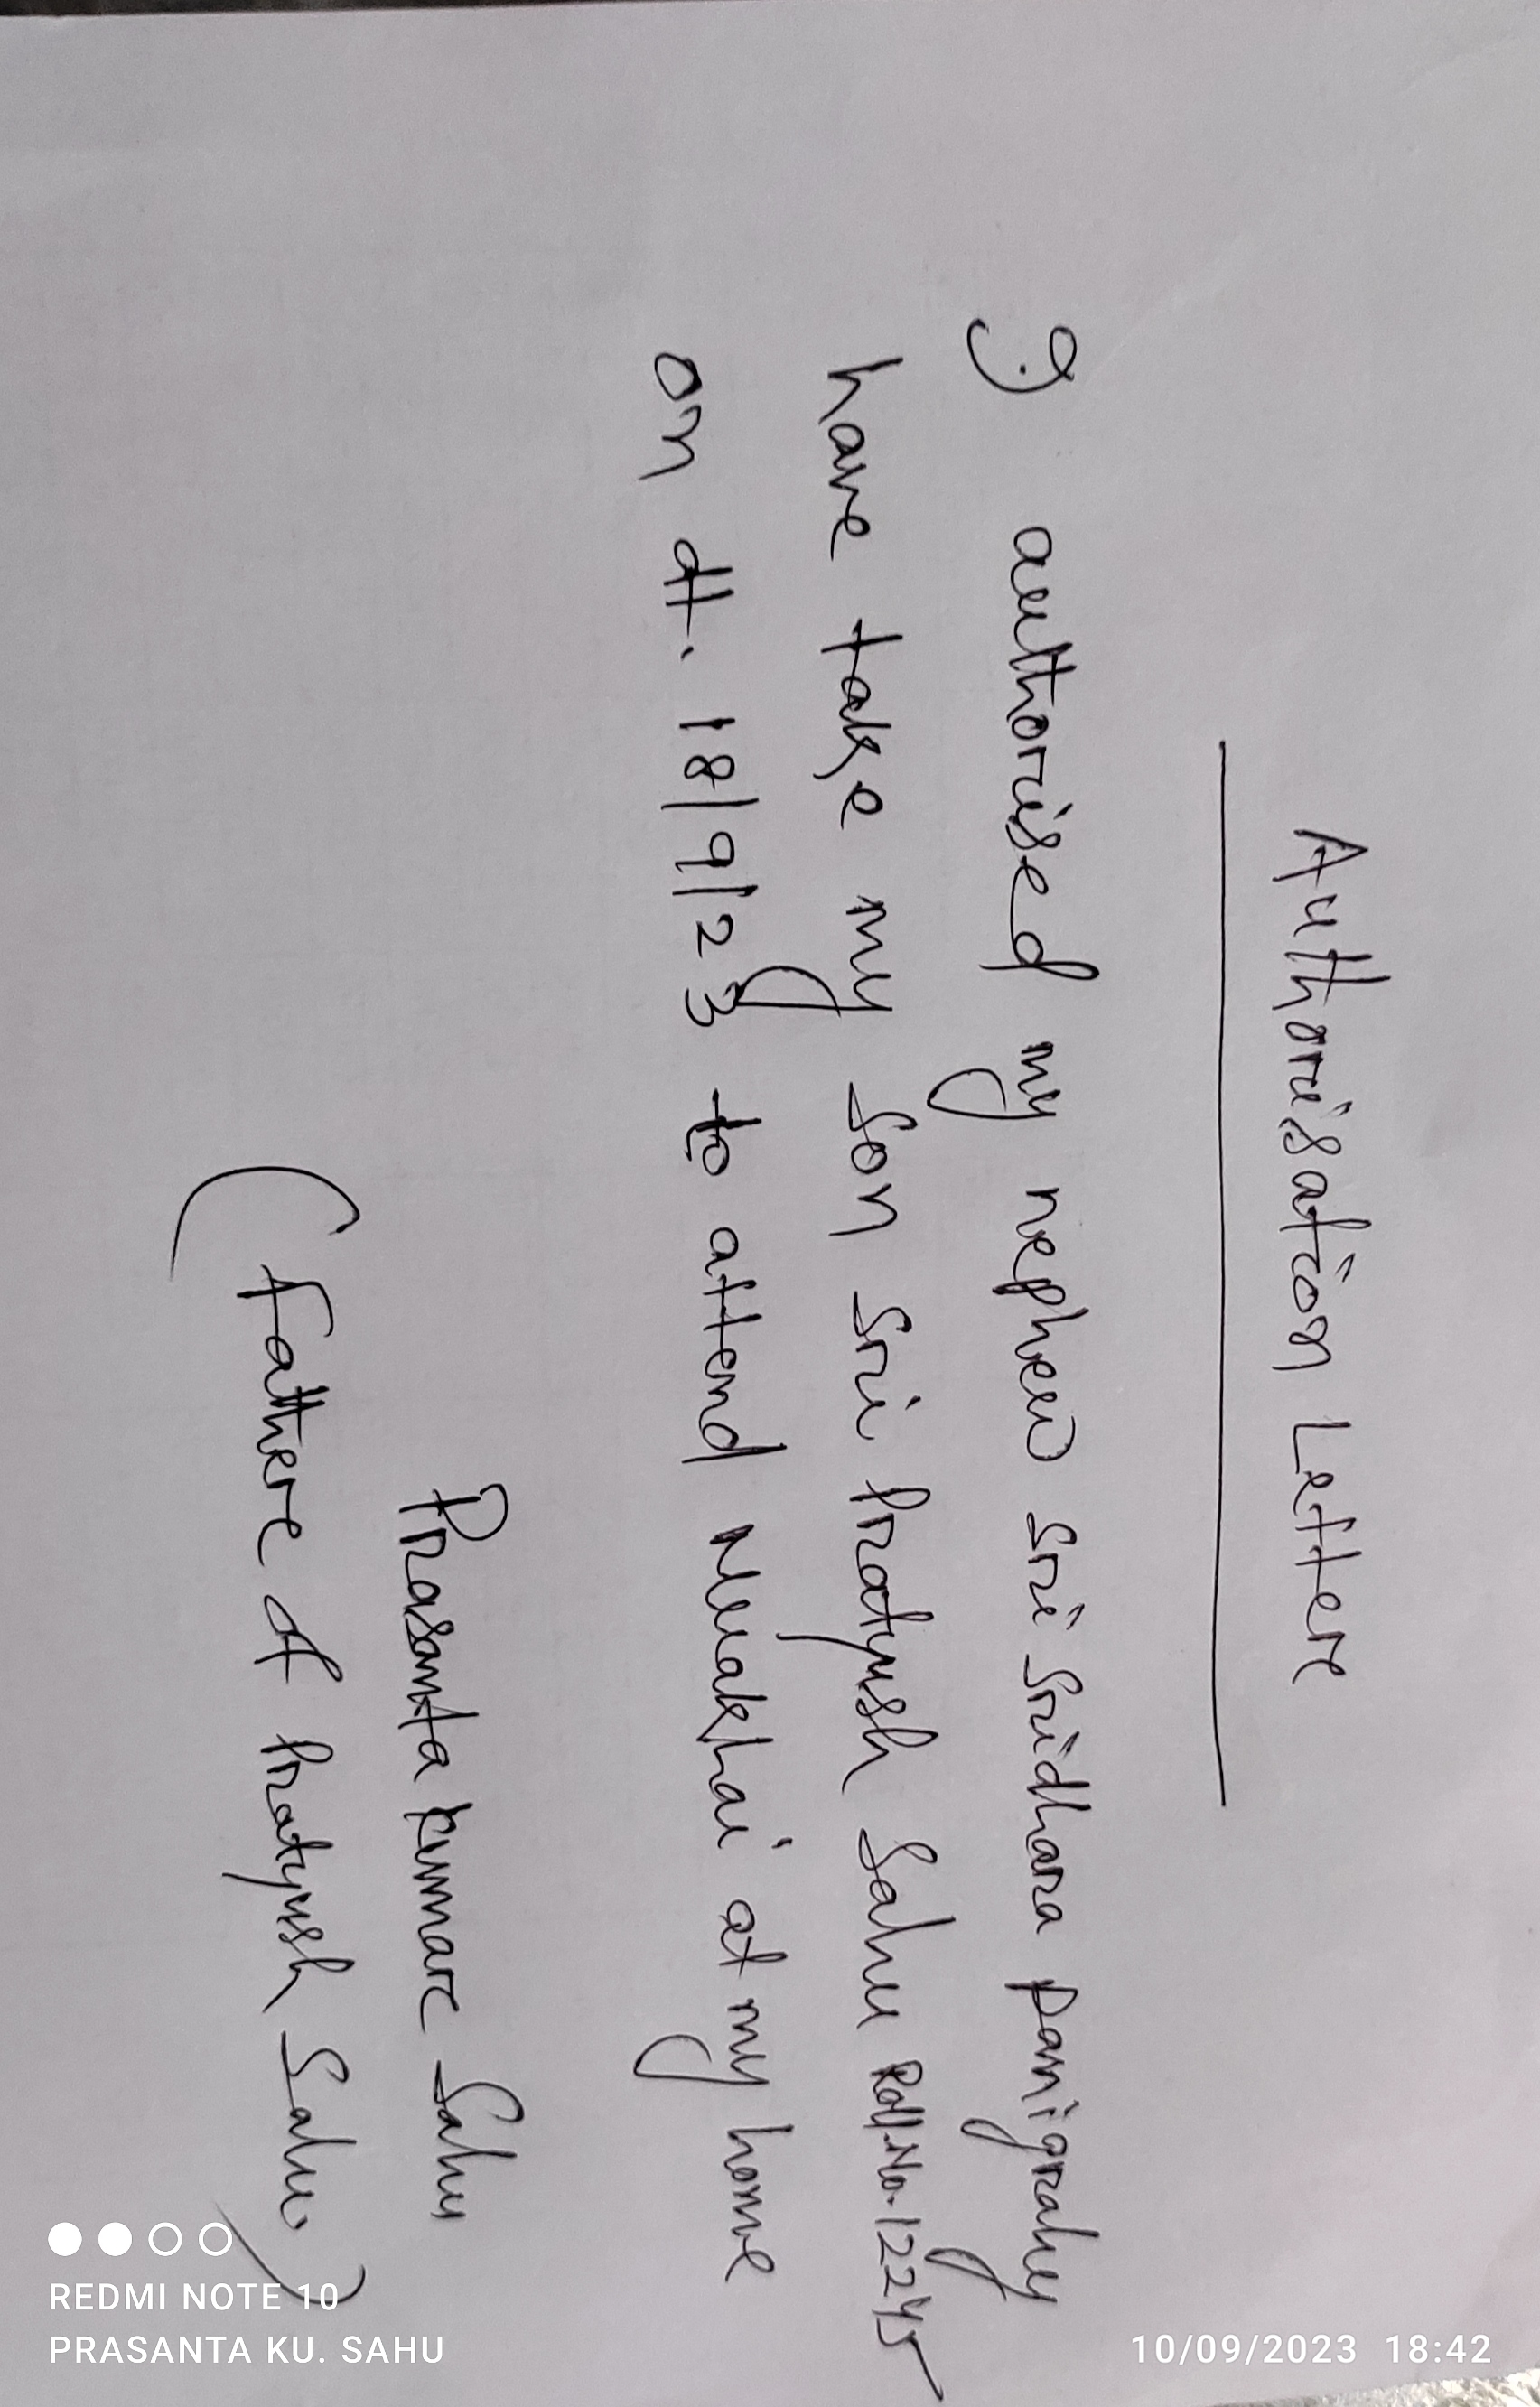 Authorisation Letter
I authorised my nephew Sri Sridhara Panigrahy
have take my son Sri Pratyush Sahu Roll.No.12245
on dt. 18/9/23 to attend Nuakhai at my home
Prasanta Kumar Sahu
(Father of Pratyush Sahu)
REDMI NOTE 10
PRASANTA KU. SAHU
10/09/2023 18:42